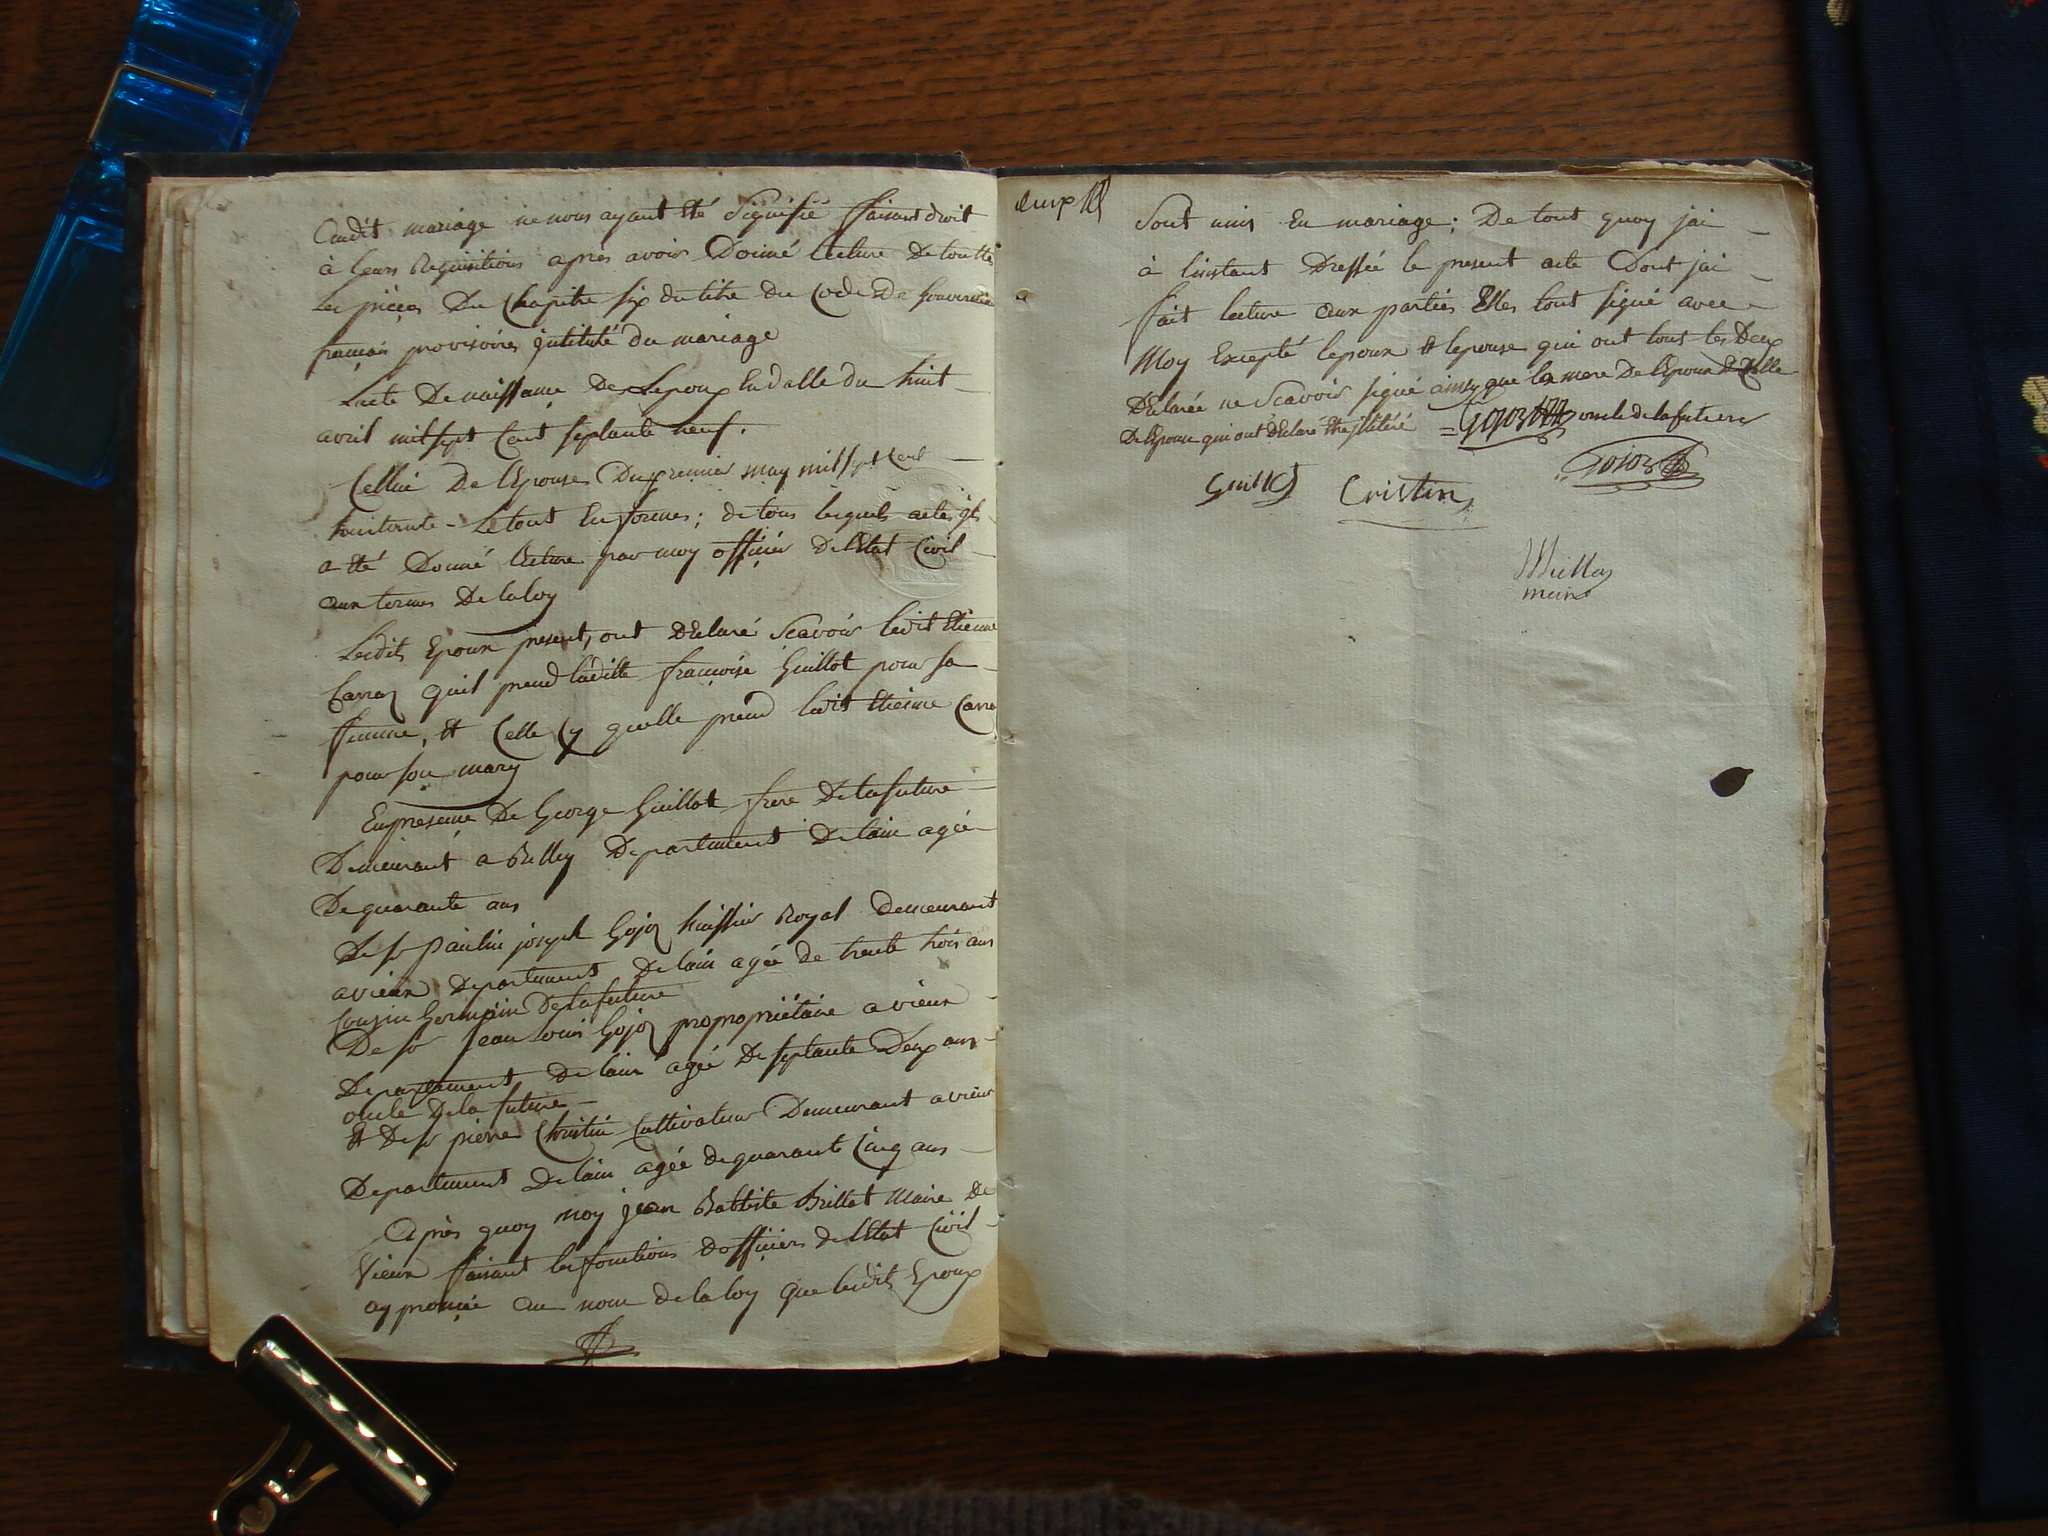 Audit mariage ne nous ayant été Signifié faisant droit
à leurs Requisitions apres avoir Donné lecture De toutte
Les pièces Du Chapitre six du titre du Code De
français provisoires jntitulé du mariage
Lacte De naissance De Lepoux En datte du huit
avril mil sept Cent septante neuf.
Cellui De l'Epouse Du premier may mil sept Cent
huitante - Le tout En formes ; de tous lesquels actes jl
a été Donné lecture par moy officier De l'Etat Civil
aux termes De la loy
Lesdits Epoux present, ont Déclaré Scavoir ledit Etienne
Carraz quil prend laditte françoise Guillot pour sa
femme, et Celle Cy quelle prend ledit Etienne Carra
pour son mary
En presence De George Guillot frere De la future
Demeurant a Belley Departement De lain agée
De quarante ans
De sr paulin joseph Gojoz huissier Royal demeurant
a vieux Departement De lain agée de trente trois ans
Cousin Germain De la future
De sr jean Louis Gojoz propropriétaire a vieux
Departement De lain agée De septante Deux ans
oncle De la future
Et De sr pierre Christin Cultivateur Demeurant a vieux
Departement De lain agée de quarante Cinq ans
Après quoy moy jean Babtiste Brillat Maire De
Vieux faisant les fonctions d'officier de l'Etat Civil
ay prononcé au nom de la loy que lesdits Epoux
Sont unis En mariage ; De tout quoy jai
à linstant Dressée le present acte Dont jai
fait lecture aux parties Elles lont signé avec
Moy Excepté lepoux et lepouse qui ont tous les Deux
Déclarée ne Scavoir signé ainsy que la mere De l'Epoux Et Celle
De l'Epouse qui ont Déclaré Etre jlitéré = Gojoz oncle de la future
Gojoz
Guillot Cristin
maire